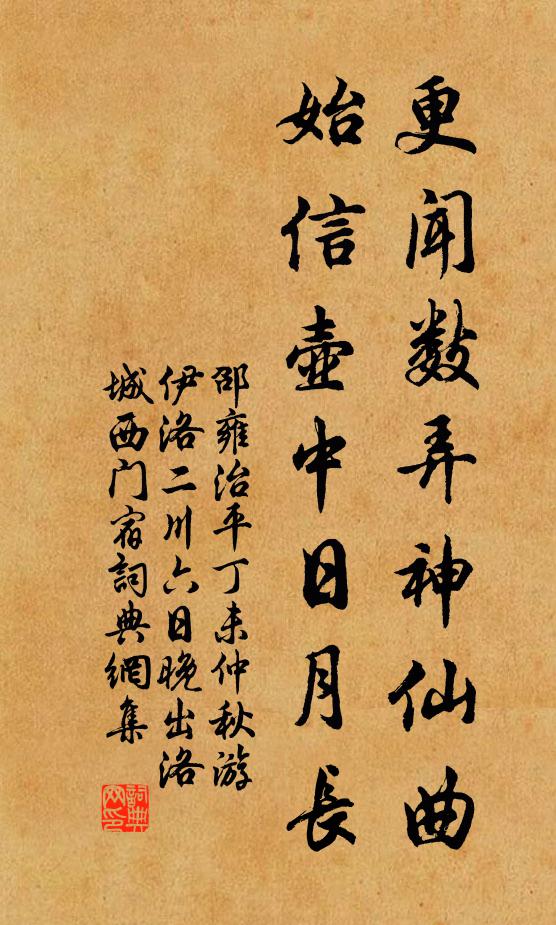 更闻数弄神仙曲
始信壷中日月長
邵雍治平丁未仲秋游
伊洛二川六日晚出洛
城西门宿詞典網集
詞典
网印